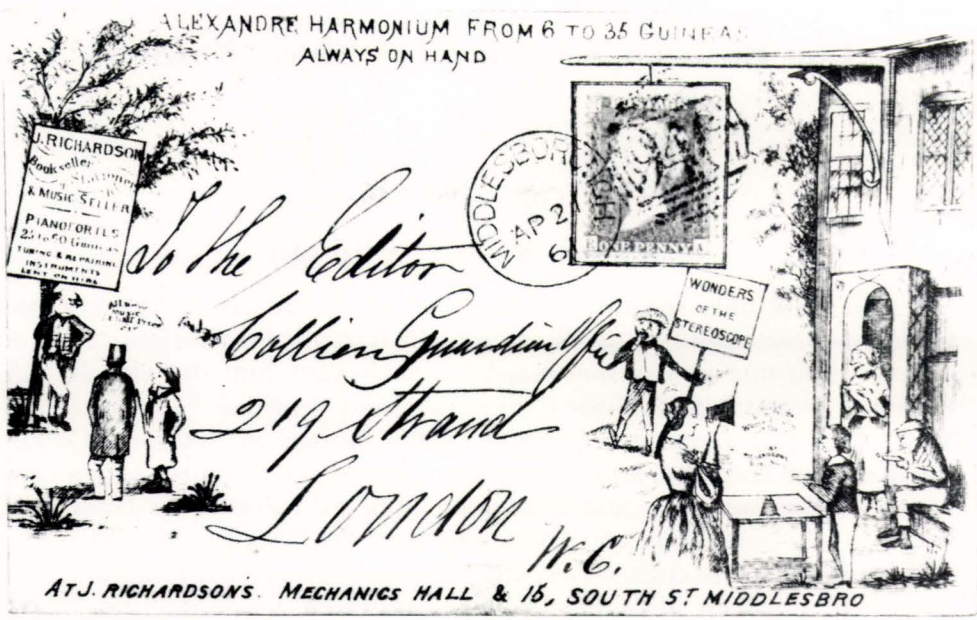 ALEXANDRE HARMONIUM FROM 6 TO 35 GUINEAS
ALWAYS ON HAND
J. RICHARDSON
Bookseller
Stationer
& MUSIC SELLER
PIANOFORTES
25 to 60 Guineas
TUNING & REPAIRING
INSTRUMENTS
LENT ON HIRE
MIDDLESBORO
AP 2
61
POSTAGE
ONE PENNY
WONDERS
OF THE
STEREOSCOPE
To the Editor
Collier Guardian Office
219 Strand
London
W.C.
AT J. RICHARDSON'S. MECHANICS HALL & 15, SOUTH ST MIDDLESBRO